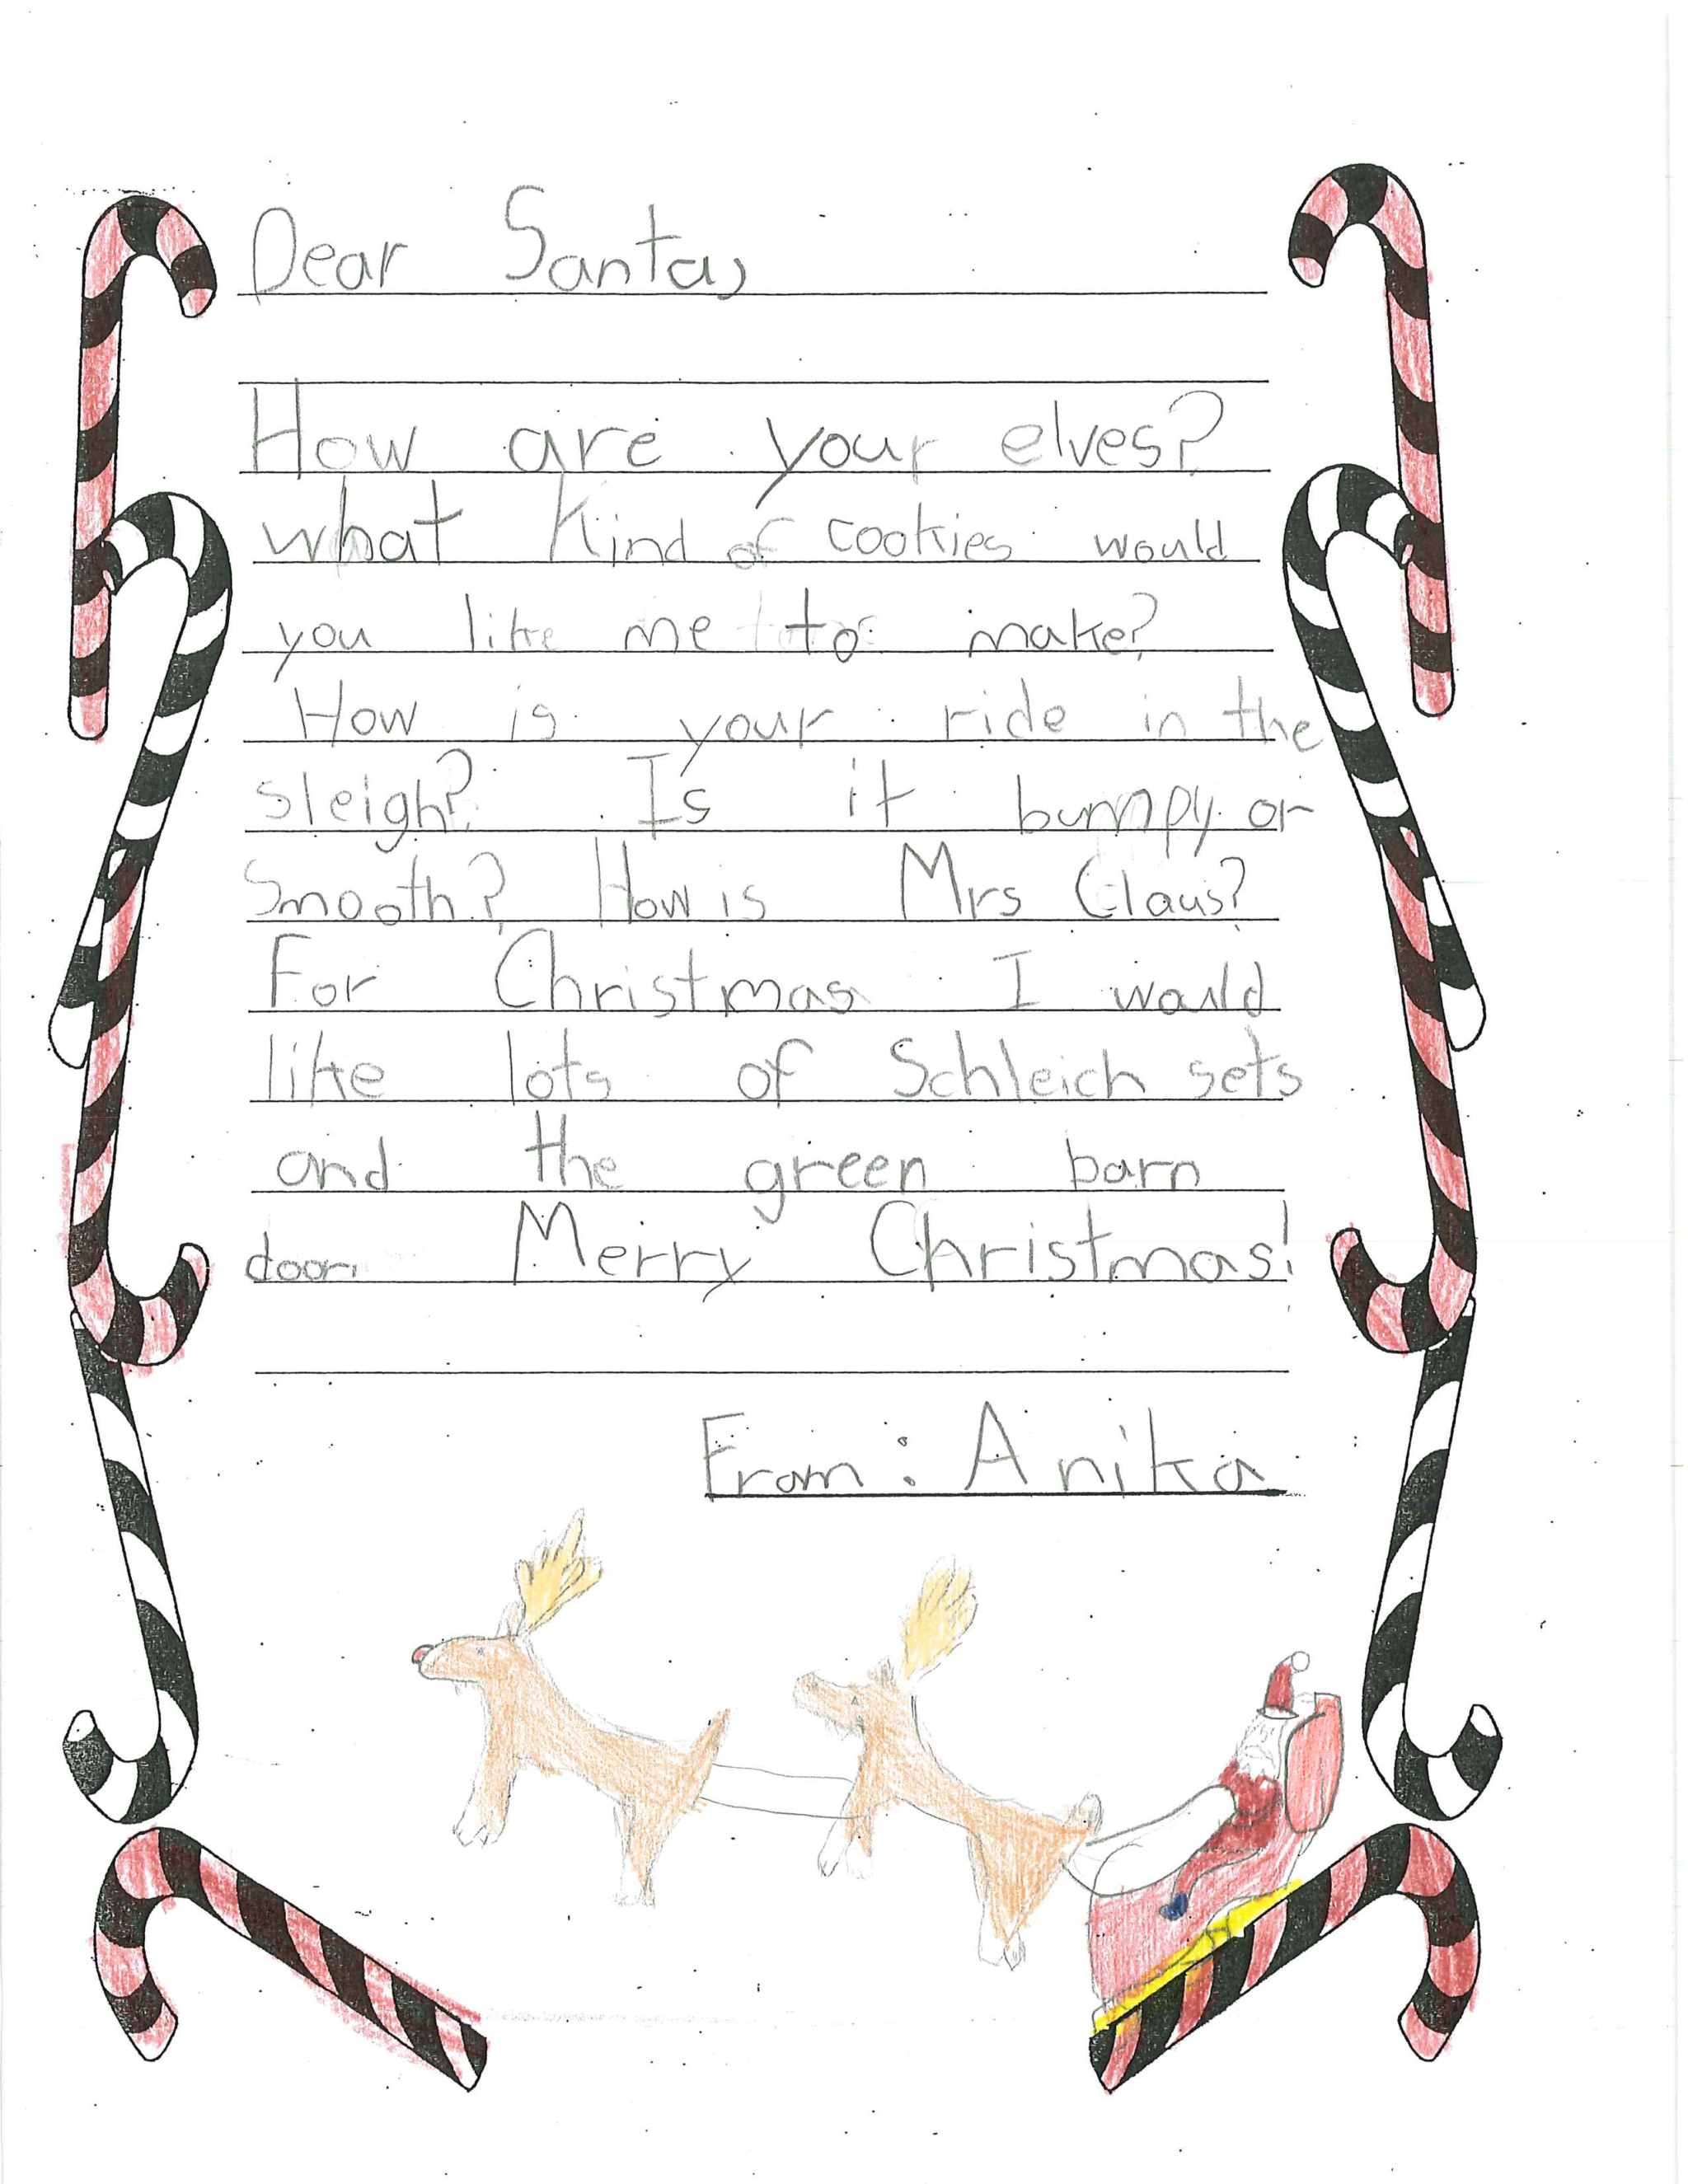 Dear Santa,
How are your elves?
what kind of cookies would
you like me to make?
How is your ride in the
sleigh? Is it bumpy or
smooth? How is Mrs Claus?
For Christmas I would
like lots of Schleich sets
and the green barn
door. Merry Christmas!
From: Anika